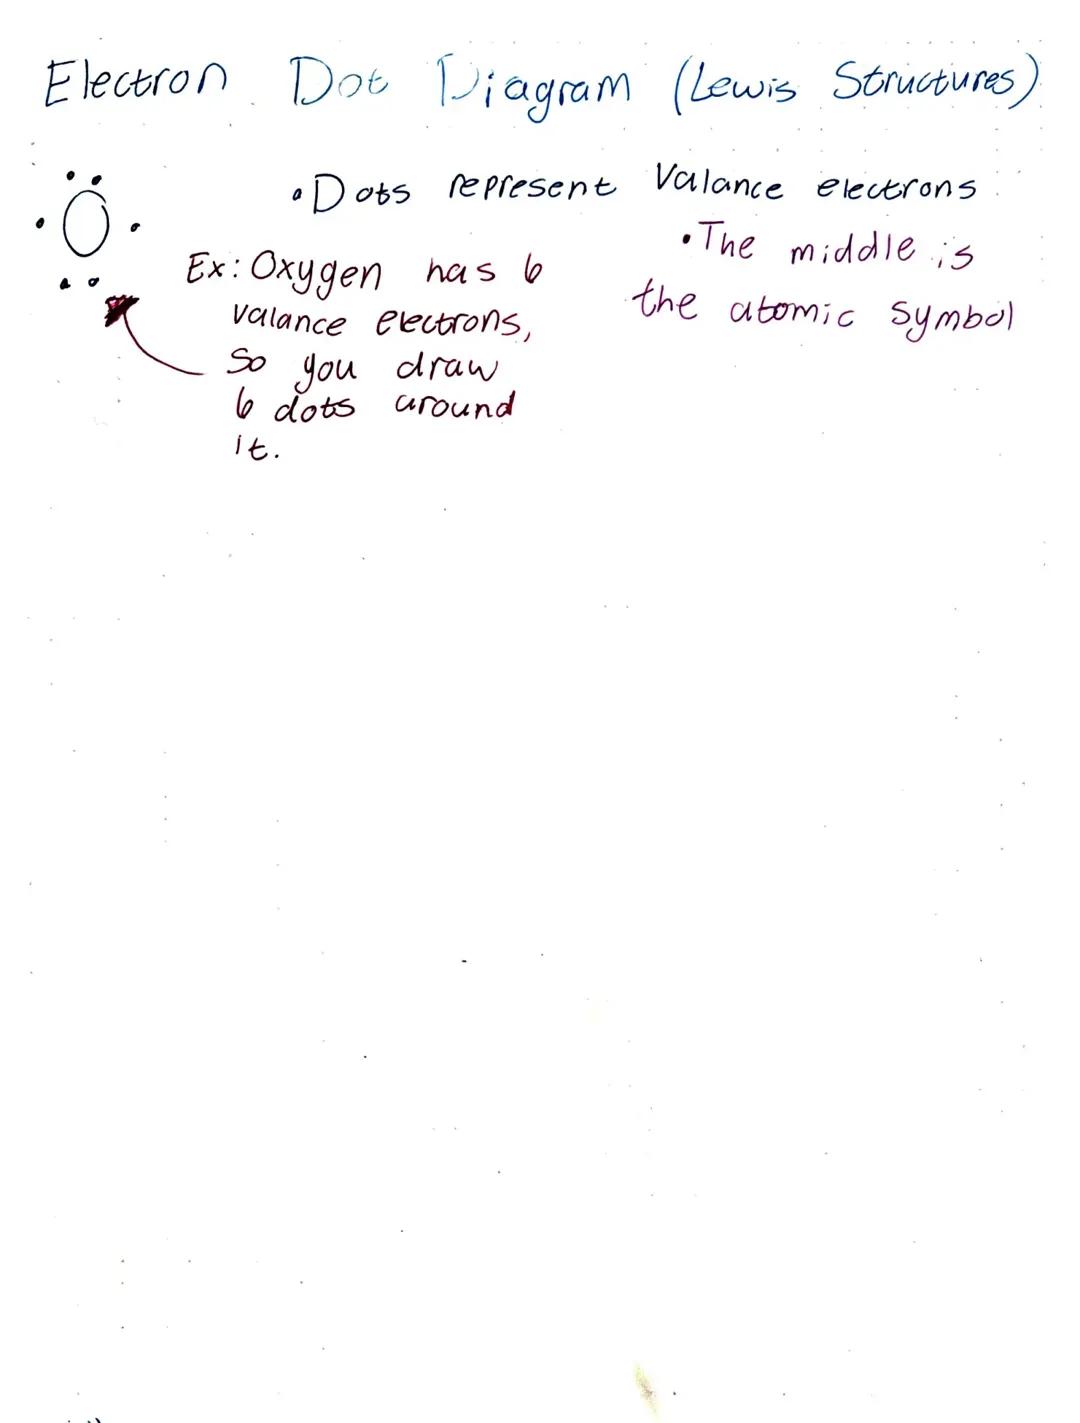 Electron Dot Diagram (Lewis Structures)
• Dots represent Valance electrons
O
• The middle is
the atomic symbol
Ex: Oxygen has 6
valance electrons,
So you draw
6 dots around
it.